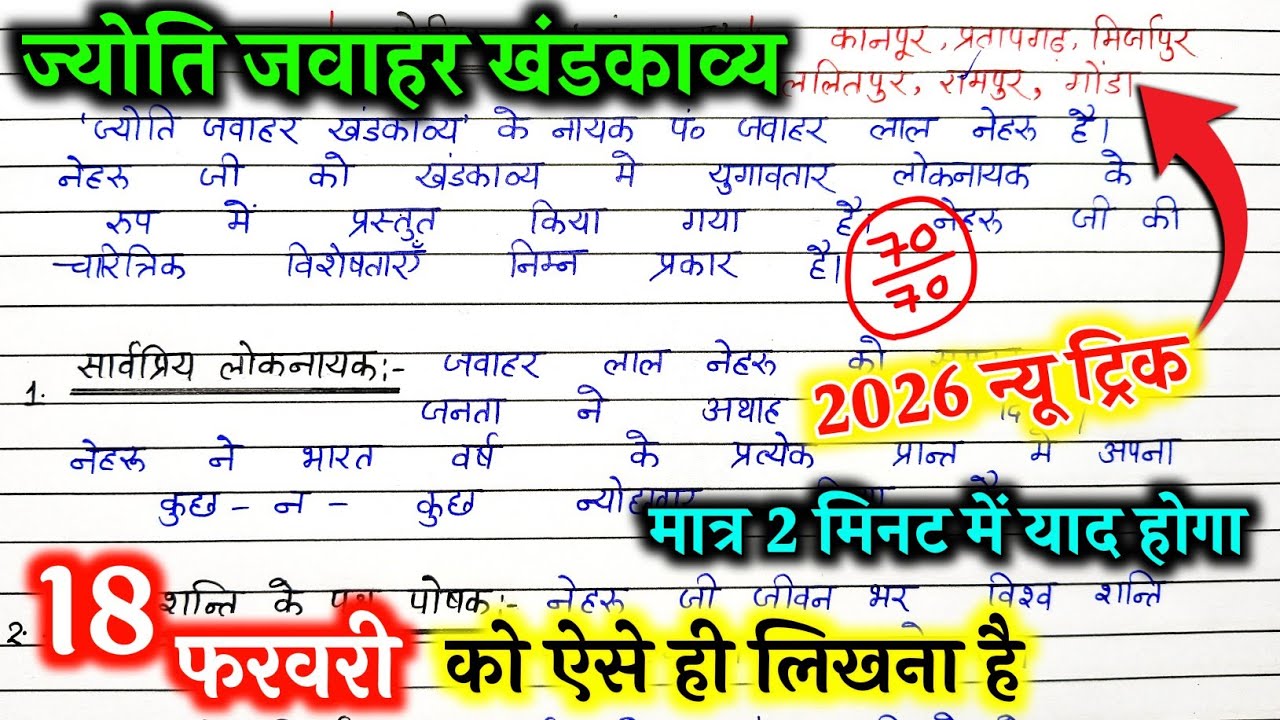 ज्योति जवाहर खंडकाव्य
कानपूर, प्रतापगढ़, मिर्जापुर
ललितपुर, रामपुर, गोंडा
'ज्योति जवाहर खंडकाव्य' के नायक पं० जवाहर लाल नेहरू है।
नेहरू जी को खंडकाव्य मे युगावतार लोकनायक के
रुप में प्रस्तुत किया गया है। नेहरू जी की
चारित्रिक विशेषताएँ निम्न प्रकार है।
70/70
1. सार्वप्रिय लोकनायक:- जवाहर लाल नेहरू को
2026 न्यू ट्रिक
जनता ने अथाह
नेहरू ने भारत वर्ष के प्रत्येक प्रान्त मे अपना
कुछ - न - कुछ
मात्र 2 मिनट में याद होगा
2. शन्ति के पोषक:- नेहरू जी जीवन भर विश्व शन्ति
18 फरवरी को ऐसे ही लिखना है